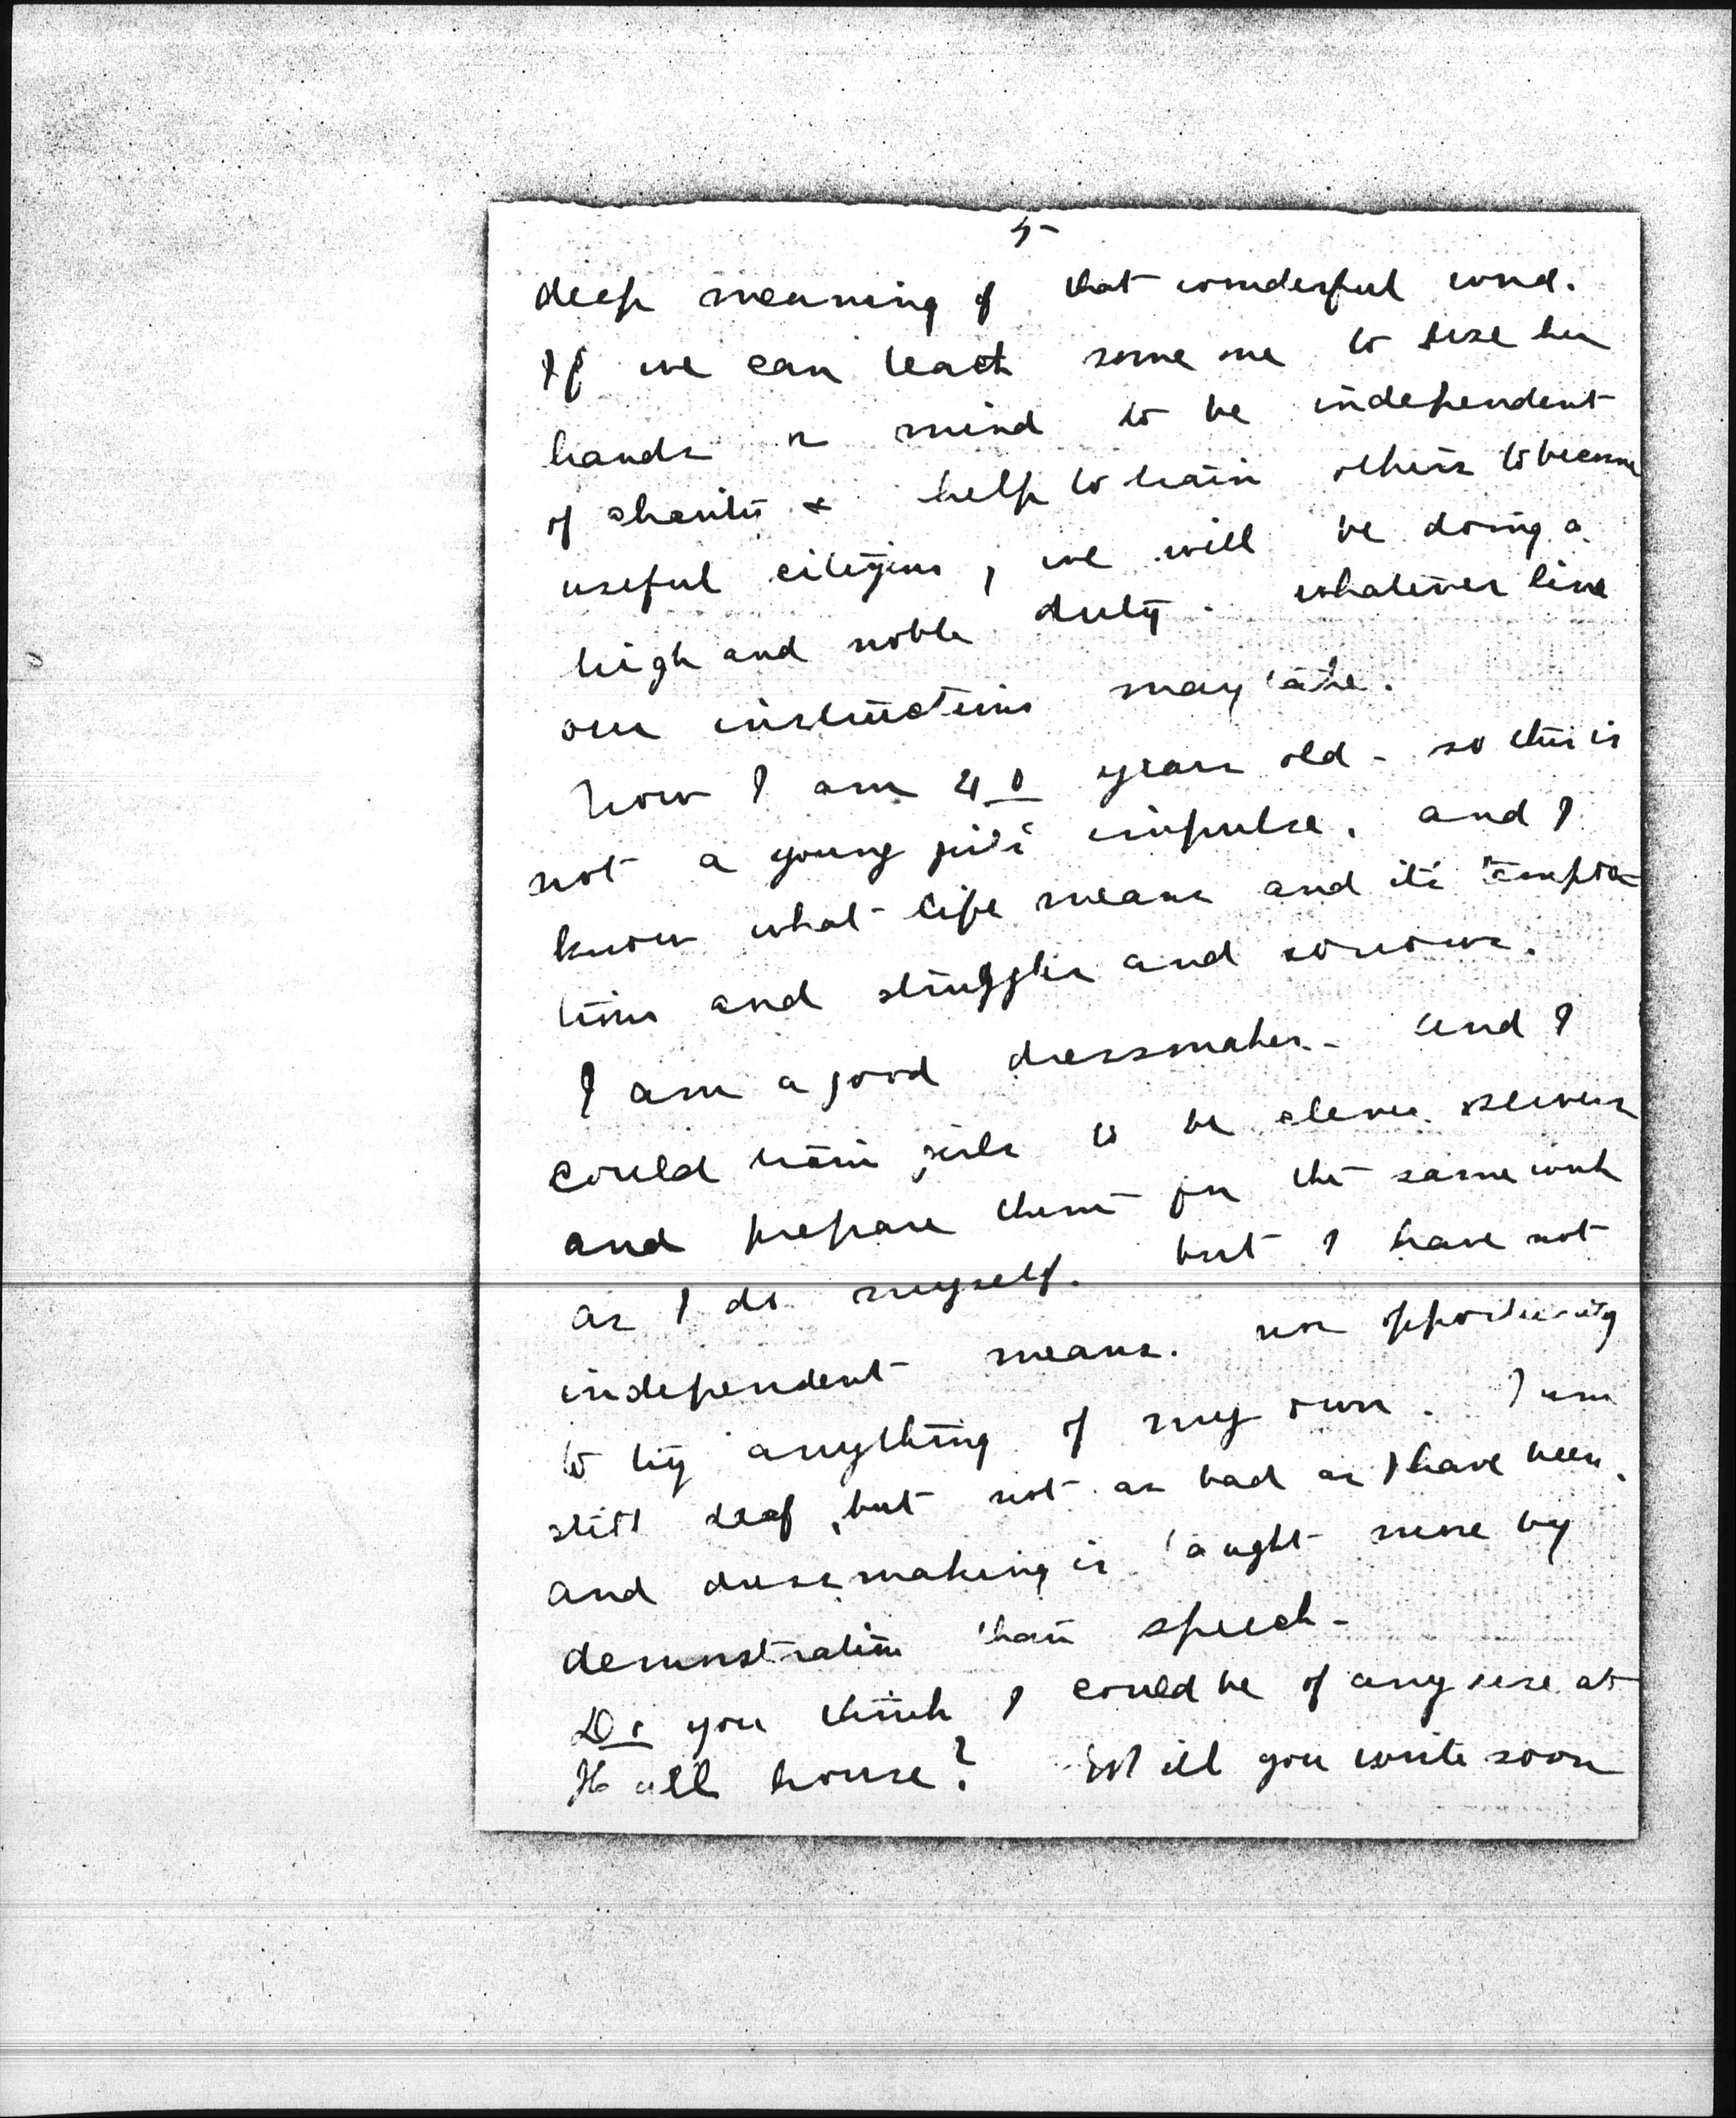 5-
deep meaning of that wonderful word.
If we can teach some one to use her
hands or mind to be independent
of charity & help to train others to become
useful citizens, we will be doing a
high and noble duty. whatever line
our instructions may take.
Now I am 40 years old - so this is
not a young girl's impulse. and I
know what life means and its tempta-
tions and struggles and sorrows.
I am a good dressmaker - and I
could train girls to be clever sewers
and prepare them for the same work
as I do myself. but I have not
independent means. nor opportunity
to try anything of my own. I am
still deaf, but not as bad as I have been.
and dressmaking is taught more by
demonstration than speech -
Do you think I could be of any use at
Hull house? Will you write soon